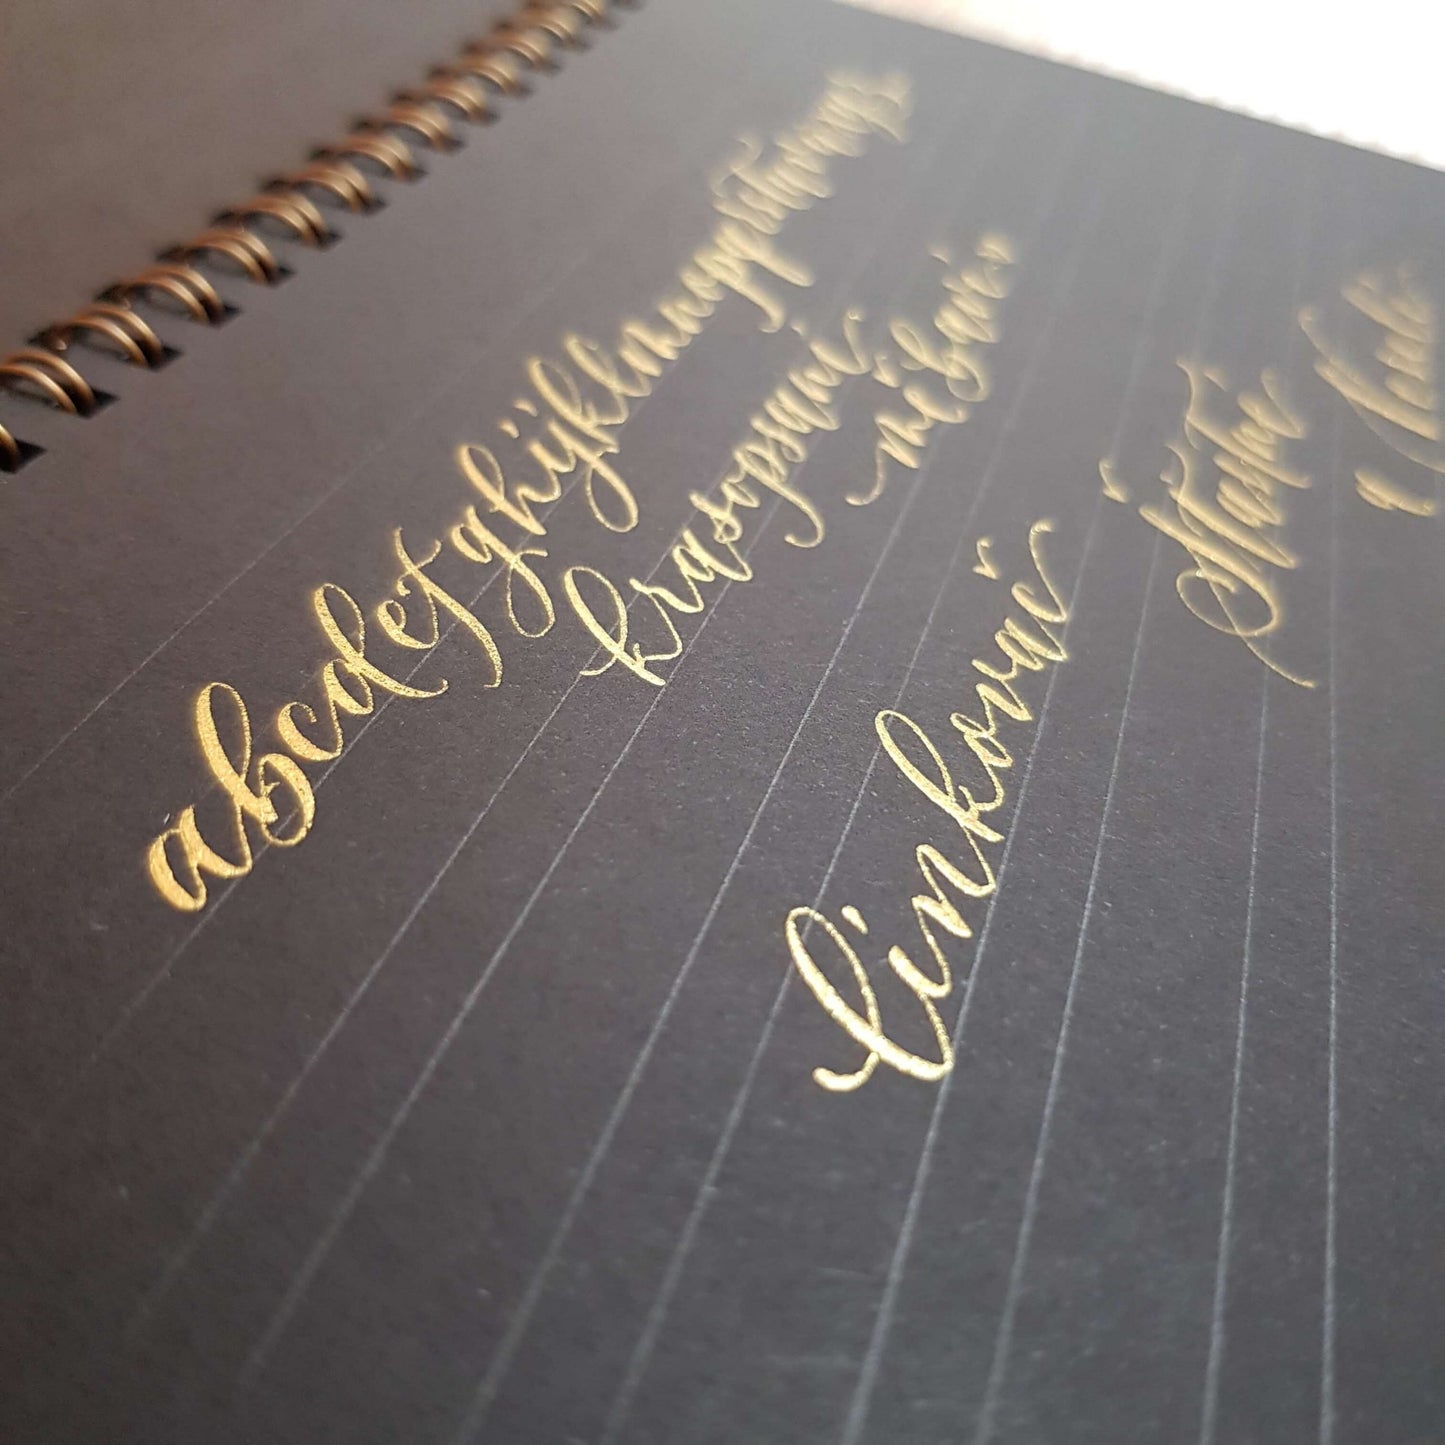 abcdefghijklmnopqrstuvwxyz
krasopsaní mě baví
linkovač
Šťastné
a